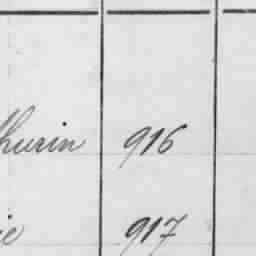 thurin 916
ie 917